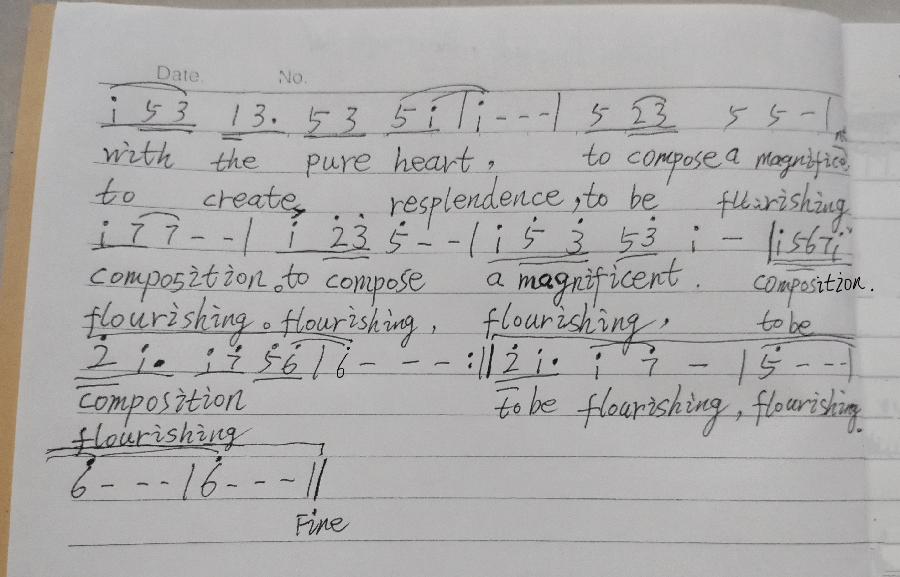 Date. No.
i 5 3 1 3. 5 3 5 i | i - - - | 5 2 3 5 5 - |
with the pure heart, to compose a magnificent
to create, resplendence, to be flourishing
i 7 7 - - | i 2 3 5 - - | i 5 3 5 3 i - | i 5 6 7 i
composition. to compose a magnificent. composition.
flourishing. flourishing, flourishing, to be
2 i. i 7 5 6 | 6 - - - :|| 2 i. i 7 - | 5 - - - |
composition to be flourishing, flourishing.
flourishing
6 - - - | 6 - - - ||
Fine